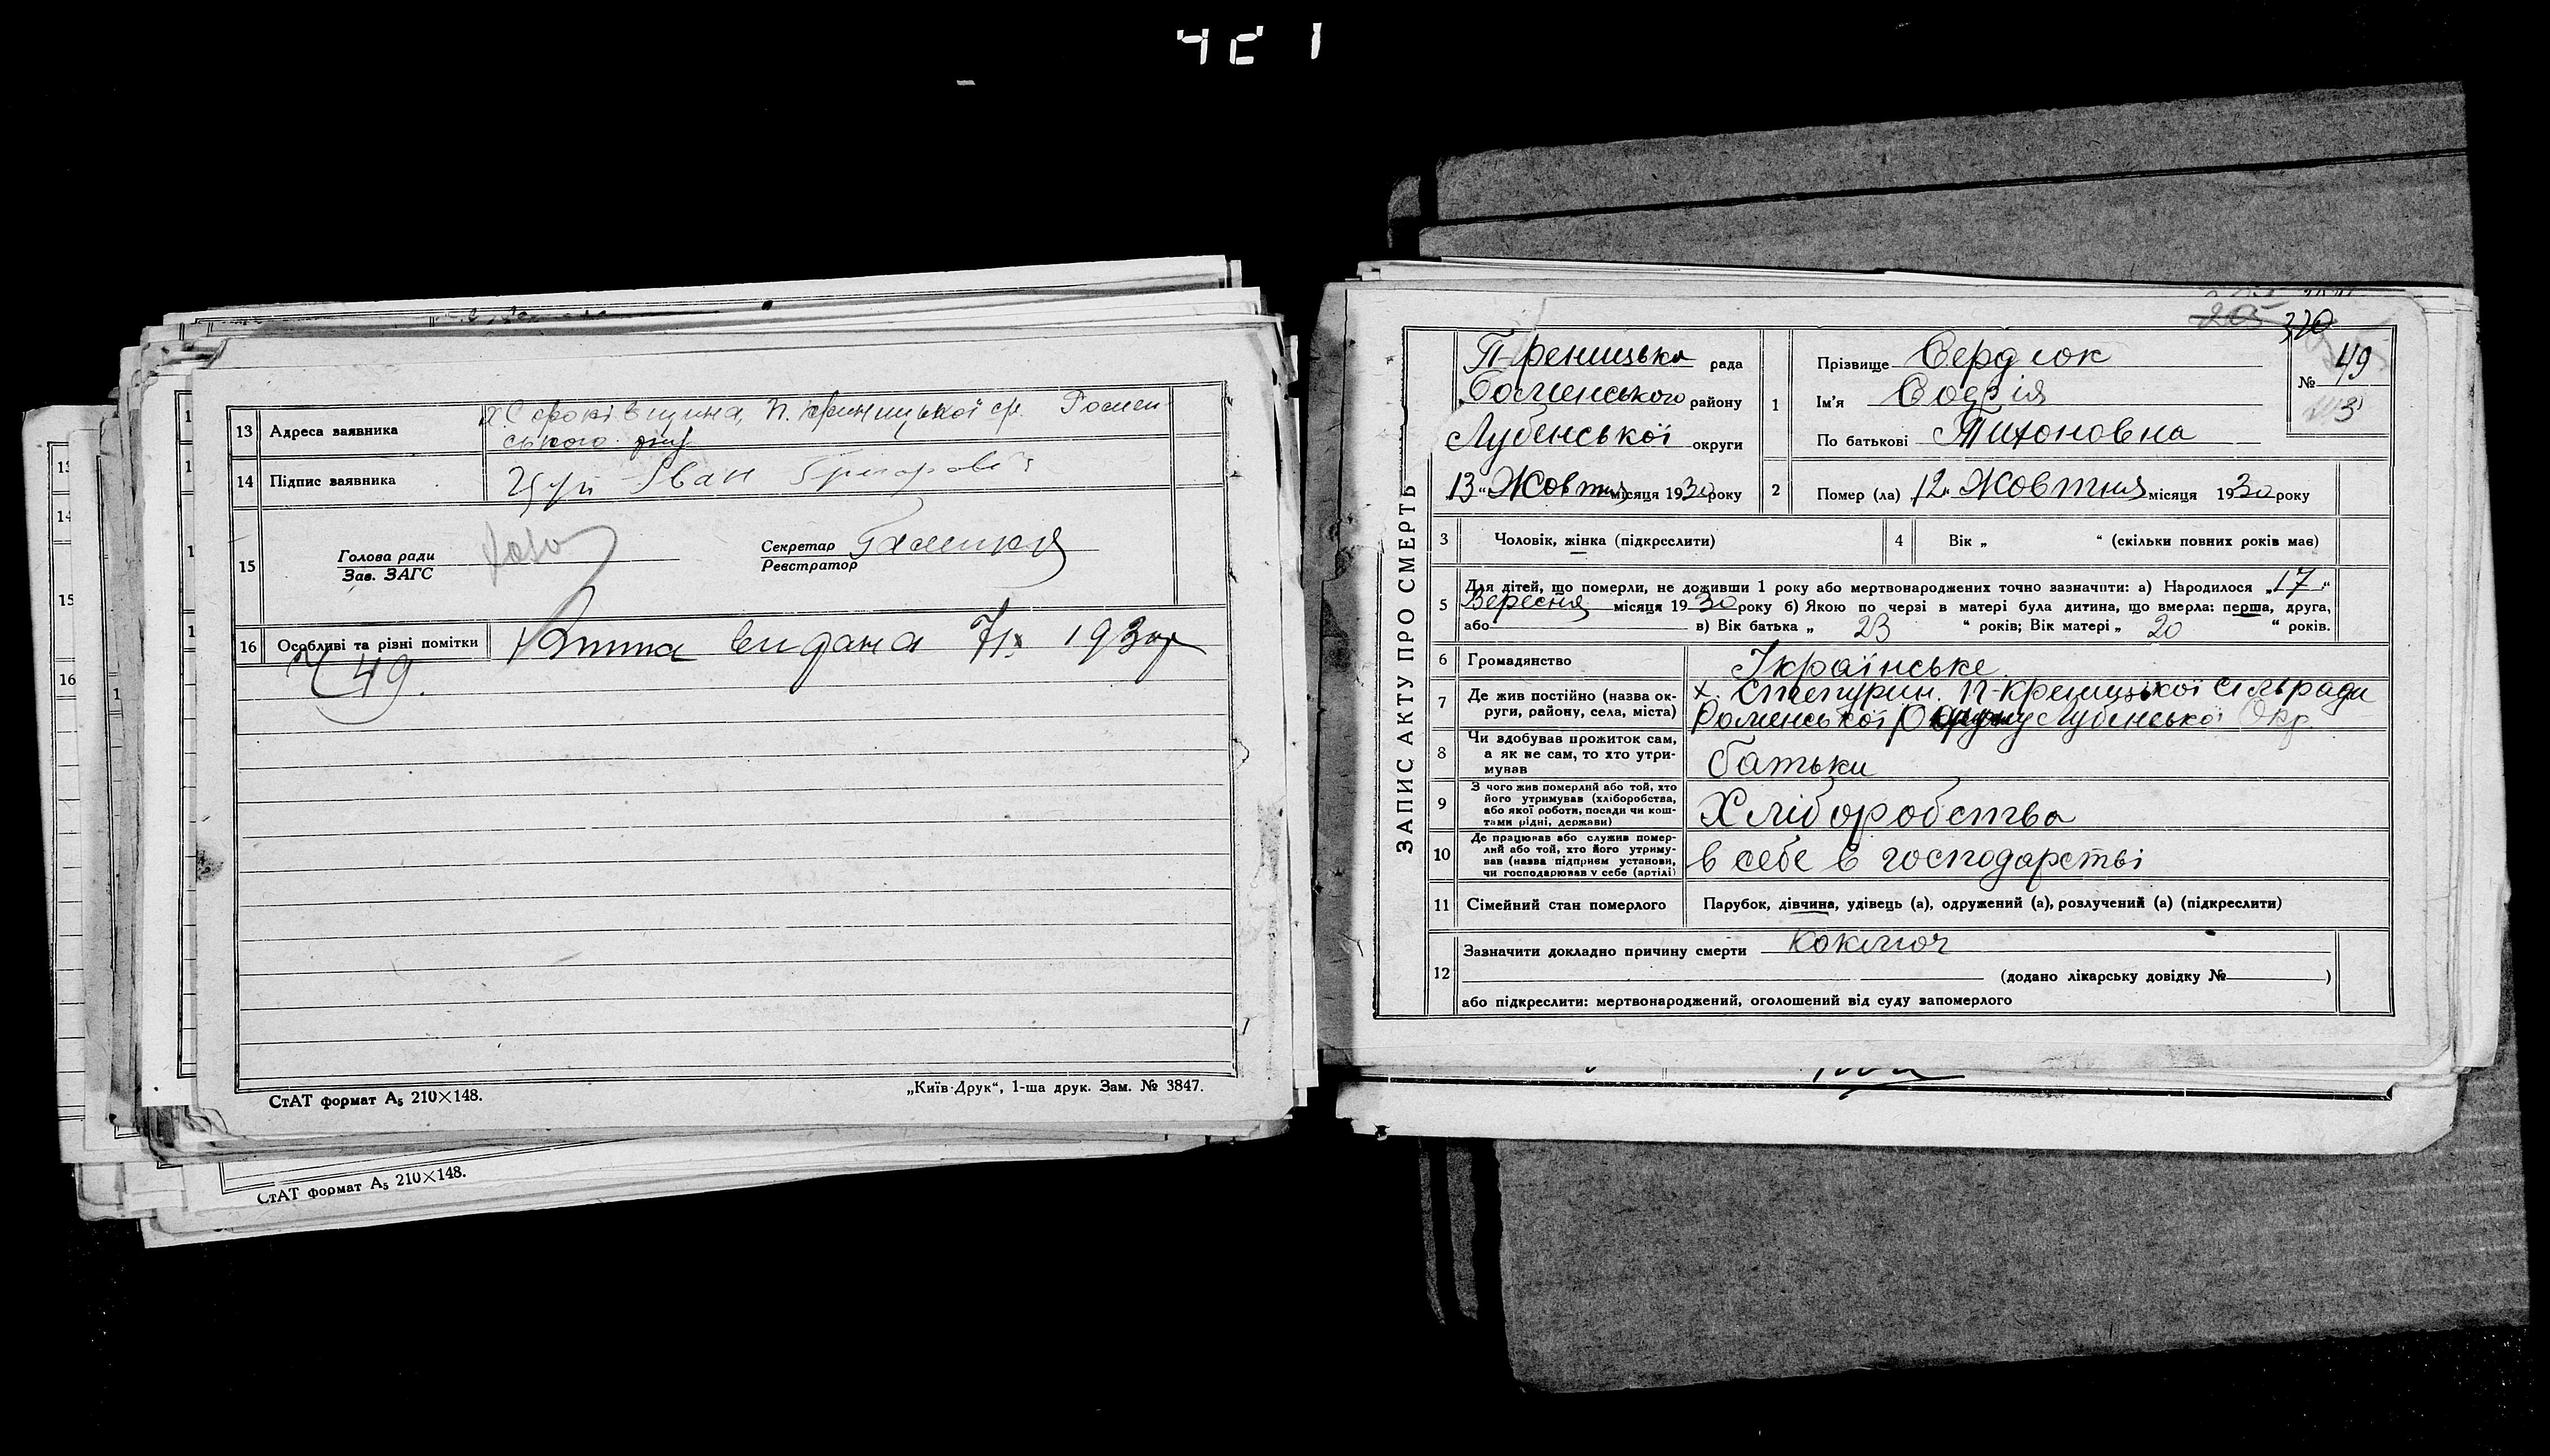 13 Адреса заявника
х. Сороківщина, П. Криницької с/р. Ромен-
ського
14 Підпис заявника
Іван Григорович
15 Голова ради
Зав. ЗАГС
Секретар
Реєстратор
16 Особливі та різні помітки
видана 193 р
49.
СтАТ формат А₅ 210×148.
„Київ-Друк“, 1-ша друк. Зам. № 3847.
СтАТ формат А₅ 210×148.
ЗАПИС АКТУ ПРО СМЕРТЬ
205 320
рада
Роменського району
Лубенської округи
„13“ Жовтня місяця 1930 року
№ 49
1 Прізвище Сердюк
Ім'я Софія
По батькові Тихоновна
2 Помер (ла) „12“ Жовтня місяця 1930 року
3 Чоловік, жінка (підкреслити)
4 Вік „ “ (скільки повних років має)
5 Для дітей, що померли, не доживши 1 року або мертвонароджених точно зазначити: а) Народилося „17“
Вересня місяця 1930 року б) Якою по черзі в матері була дитина, що вмерла: перша, друга,
або в) Вік батька „ 23 “ років; Вік матері „ 20 “ років.
6 Громадянство Українське
7 Де жив постійно (назва ок-
руги, району, села, міста)
х. П-Криницької сільради
Роменської Лубенської Окр.
8 Чи здобував прожиток сам,
а як не сам, то хто утри-
мував
батьки
9 З чого жив померлий або той, хто
його утримував (хліборобства,
або якої роботи, посади чи кош-
тами рідні, держави)
Хліборобства
10 Де працював або служив помер-
лий або той, хто його утриму-
вав (назва підприєм установи,
чи господарював у себе (артілі)
в себе в господарстві
11 Сімейний стан померлого
Парубок, дівчина, удівець (а), одружений (а), розлучений (а) (підкреслити)
12 Зазначити докладно причину смерти коключ
(додано лікарську довідку № )
або підкреслити: мертвонароджений, оголошений від суду запомерлого